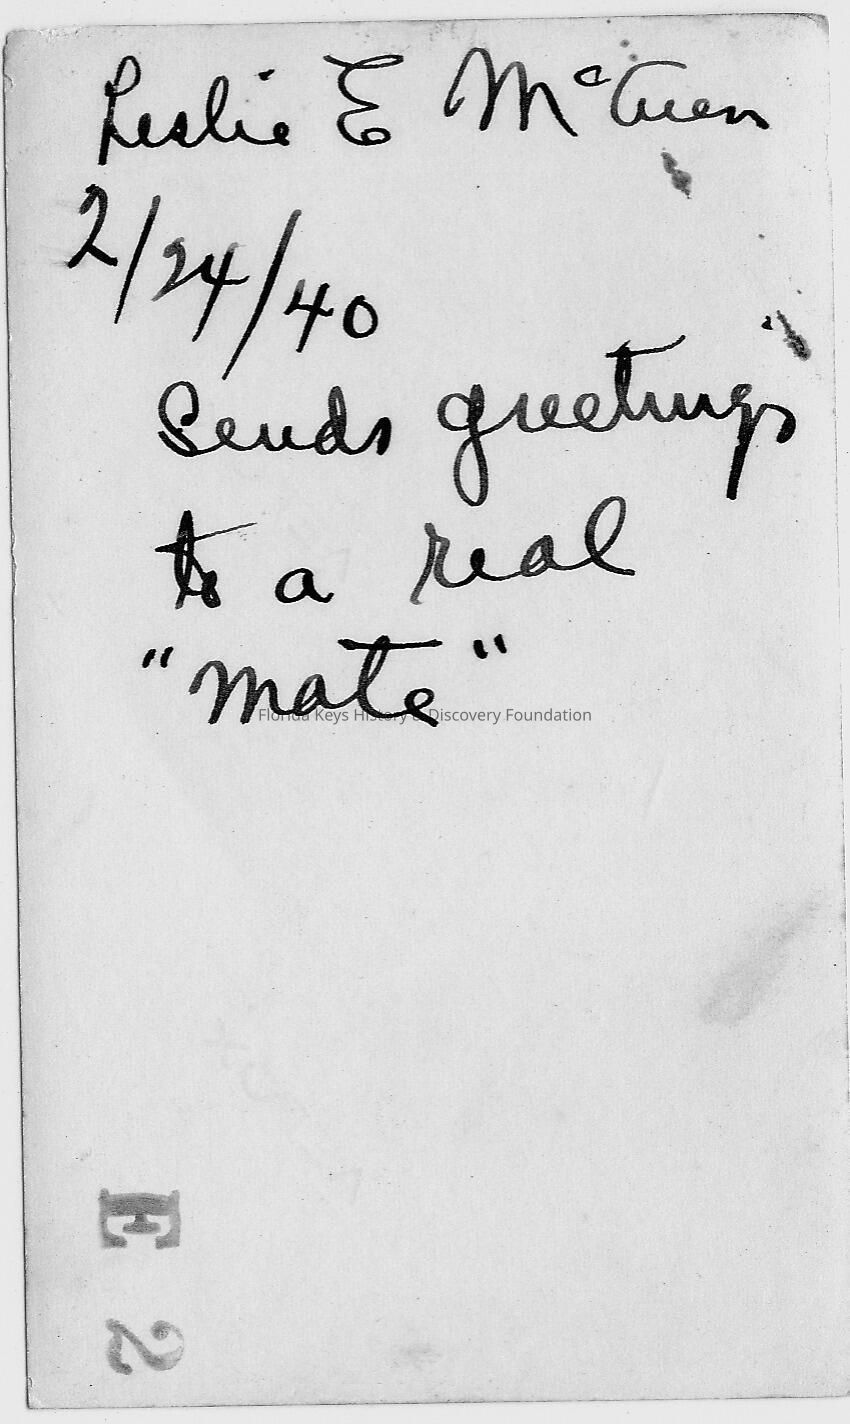 Leslie E McCuen
2/24/40
Sends greetings
to a real
"Mate"
Florida Keys History & Discovery Foundation
E 2